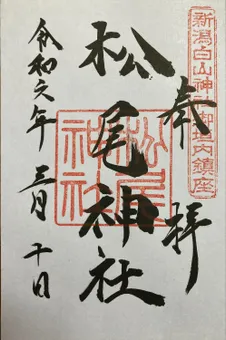 新潟白山神社御境内鎮座
奉拝
松尾神社
松尾神社
令和六年三月十日